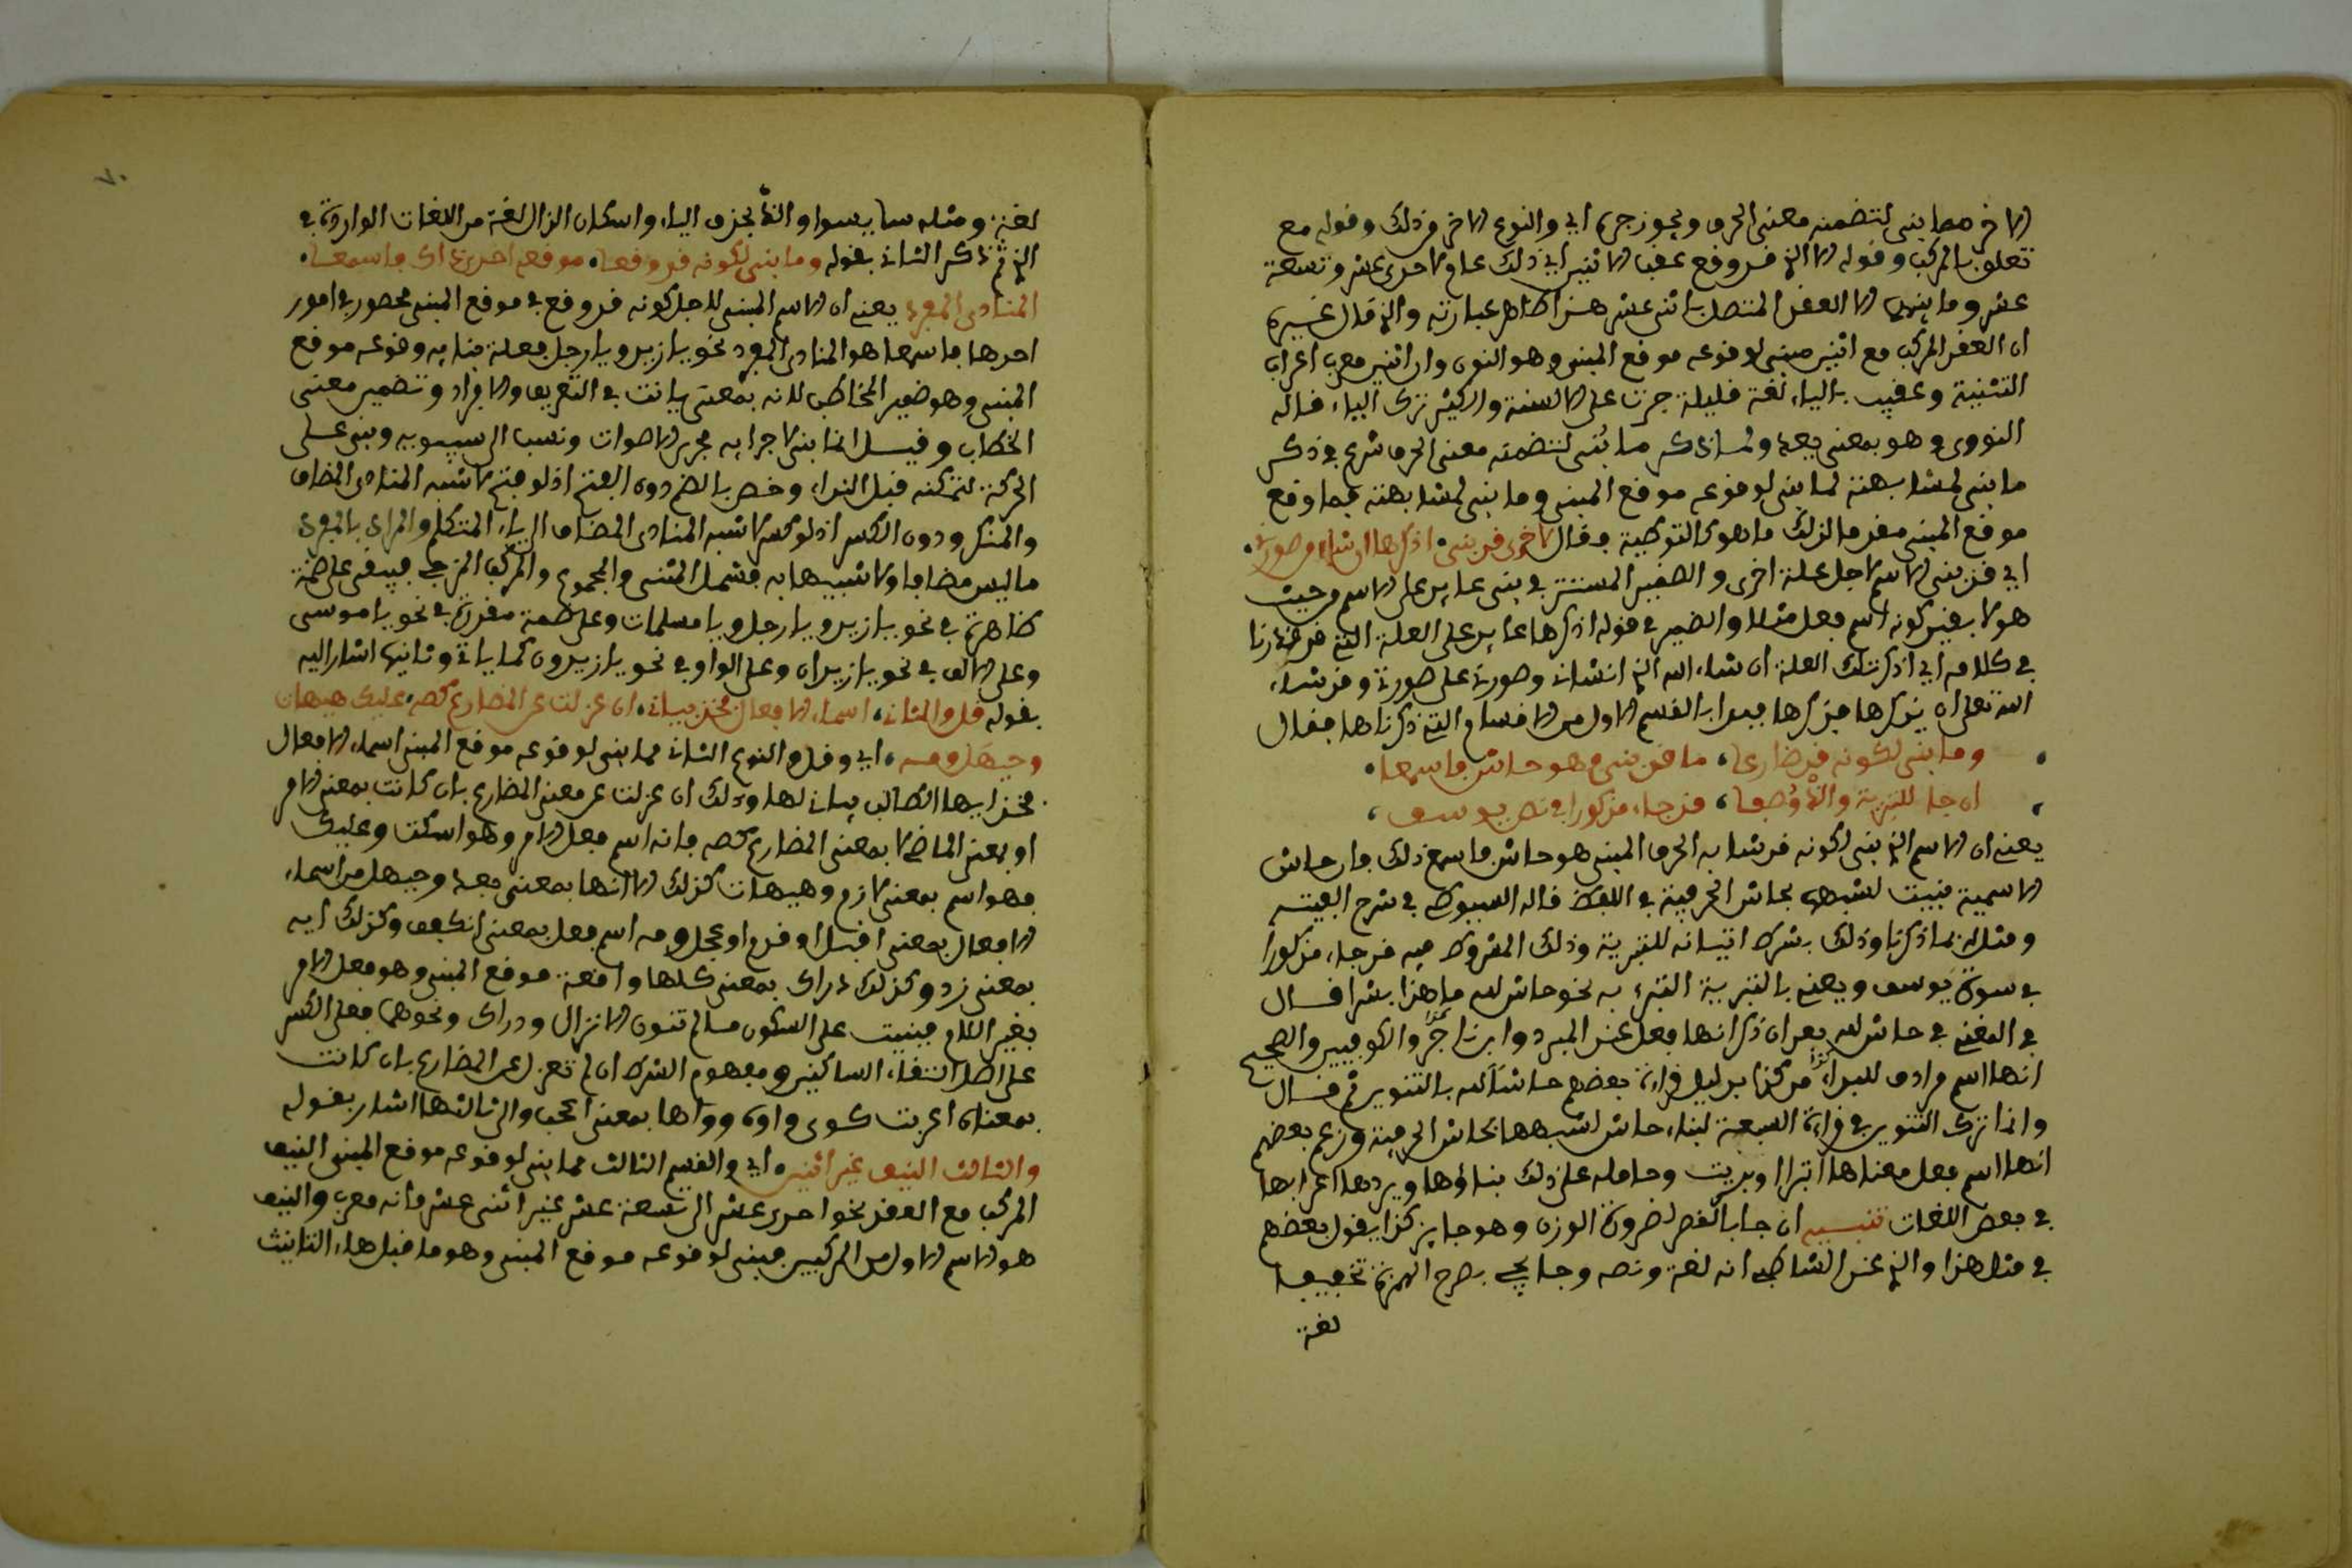 الاخر مما بنى لتضمنه معنى الحرف ويجوز جره اي والنوع الاخر من ذلك وقوله مع
تعلق بالمركب وقوله الا الذي قد وقع عقب الاثنين اي ذلك عام احدى عشر وتسعة
عشر وما بينهما الا العقد المتصل باثنى عشر هذا ظاهر عبارته والذي قال غيره
ان العقد المركب مع اثنين مبنى لوقوعه موقع المبني وهو النون وان اثنين معرب اعراب
التثنية وعقيب بالياء لغة قليلة جرت على الالسنة والكثير ترك الياء قاله
النووي وهو بمعنى بعد ولما ذكر ما بُني لتضمنه معنى الحرف شرع في ذكر
ما بني لمشابهته لما بني لوقوعه موقع المبني وما بني لمشابهته بما وقع
موقع المبني مقدما لذلك ما هو كالتوطية فقال لاخرى قد بني، اذكرها ان شاء من صورني،
اي قد بنى الاسم لاجل علة اخرى والضمير المستتر في بنى عايد على الاسم من حيث
هو لا بقيد كونه اسم فعل مثلا والضمير في قوله اذكرها عايد على العلة التي قد قدرنا
في كلامه اي اذكر تلك العلة ان شاء الله الذي انشاني وصورني على صورتي وقد شاء
الله تعلى ان يذكرها فذكرها فبدا بالقسم الاول من الاقسام التي ذكرناها فقال
وما بنى لكونه قد ضارعا، ما قد بنى وهو حاش فاسمعا،
ان جا للتنزيه والذ وُصفا، قد جاء مذكورا في نص يوسف،
يعني ان الاسم الذي بني لكونه قد شابه الحرف المبني هو حاش فاسمع ذلك فان حاش
الاسمية بنيت لشبهها بحاش الحرفية في اللفظ قاله السيوطي في شرح الفيته
ومثله بما ذكرنا وذلك بشرط اتيانه للتبرية وذلك المشروط فيه قد جاء مذكورا
في سورة يوسف ويعني بالتبرية التبرء به نحو حاش لله ما هذا بشرا قال
في المغني في حاش لله بعد ان ذكر انها فعل عند المبرد وابن جني والكوفيين والصحيح
انها اسم مرادف للبراءة من كذا بدليل قراءة بعضهم حاشا لله بالتنوين ثم قال
وانما ترك التنوين في قراءة السبعة لبناء حاش لشبهها بحاش الحرفية وزعم بعضهم
انها اسم فعل معناها اتبرا او برئت وحامله على ذلك بناؤها ويردها اعرابها
في بعض اللغات تنبيه ان جا بالقصر لضرورة الوزن وهو جايز كذا يقول بعضهم
في مثل هذا والذي عند الشاطبي انه لغة ونصه وجا يجي بطرح الهمزة تخفيفا
لغة
٧٠
لغة ومثله سا يسوا والذ بحذف الياء واسكان الذال لغة من اللغات الواردة في
الذي ثم ذكر الثاني بقوله وما بني لكونه قد وقعا، موقعه احدى ذاك فاسمعا،
المنادى المفرد يعني ان الاسم المبني لاجل كونه قد وقع في موقع المبني محصور في امور
احدها فاسمعها هو المنادى المفرد نحو يا زيد ويا رجل فعلة بنايه وقوعه موقع
المبني وهو ضمير المخاطب لانه بمعنى يا انت في التعريف والافراد وتضمين معنى
الخطاب وقيل انما بنى لاجرايه مجرى الاصوات ونسب الى سيبويه وبني على
الحركة لتمكنه قبل النداء وخص بالضم دون الفتح اذ لو فتح لاشبه المنادى المضاف
والمنكر ودون الكسر اذ لو كسر لاشبه المنادى المضاف الى ياء المتكلم والمراد بالمفرد
ما ليس مضافا ولا شبيها به فشمل المثنى والمجموع والمركب المزجي فيبقى على ضمة
ظاهرة في نحو يا زيد ويا رجل ويا مسلمات وعلى ضمة مقدرة في نحو يا موسى
وعلى الالف في نحو يا زيدان وعلى الواو في نحو يا زيدون كما ياتي وثانيها اشار اليه
بقوله قل والثاني، اسماء الافعال فخذ بياني، ان عزلت عن المضارع كصه، عليك هيهات
وحيهل ومه، اي وقل والنوع الثاني مما بني لوقوعه موقع المبني اسماء الافعال
فخذ ايها الطالب بياني لها وذلك ان عزلت عن معنى المضارع بان كانت بمعنى الامر
او بمعنى الماضي لا بمعنى المضارع كصه فانه اسم فعل الامر وهو اسكت وعليك
فهو اسم بمعنى لازم وهيهات كذلك الا انها بمعنى بعد وحيهل من اسماء
الافعال بمعنى اقبل او قدم او عجل ومه اسم فعل بمعنى انكفف وكذلك ايه
بمعنى زد وكذلك دراك بمعنى كلها واقعة موقع المبني وهو فعل الامر
بغير اللام فبنيت على السكون ما لم تنون الا نزال ودراك ونحوهما فعلى الكسر
على اصل التقاء الساكنين ومفهوم الشرط ان لم تعزل عن المضارع بان كانت
بمعناه اعربت كوى واوه وواها بمعنى اعجب والى ثالثها اشار بقوله
والثالث النيف غير اثنين، اي والقسم الثالث مما بني لوقوعه موقع المبني النيف
المركب مع العقد نحو احدى عشر الى تسعة عشر غير اثنى عشر فانه معرب والنيف
هو الاسم الاول من المركبين فبنى لوقوعه موقع المبنى وهو ما قبل هاء التانيث